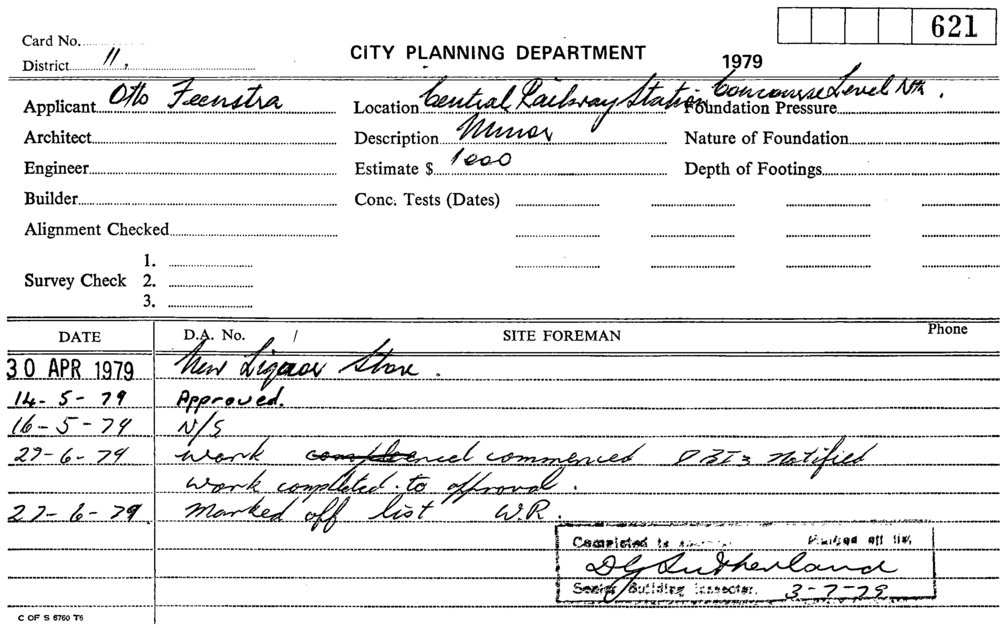 621
Card No.
CITY PLANNING DEPARTMENT
1979
District 11.
Applicant Otto Feenstra Location Central Railway Station Concourse Level Nth.
Foundation Pressure
Architect Description Minor Nature of Foundation
Engineer Estimate $ 1000 Depth of Footings
Builder Conc. Tests (Dates)
Alignment Checked
1.
Survey Check 2.
3.
DATE D.A. No. / SITE FOREMAN Phone
30 APR 1979 New Liquor Store.
14-5-79 Approved.
16-5-79 N/S
27-6-79 work commenced notified
work completed to approval.
27-6-79. Marked off list W.R.
Completed to Marked off list
D G Sutherland
Senior Building Inspector. 3-7-79
C OF S 6760 T6